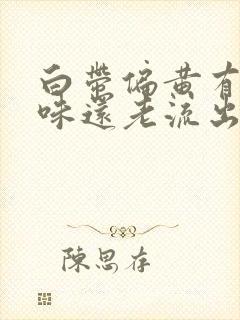 白帶偏黃有
味還老流出
陳思存